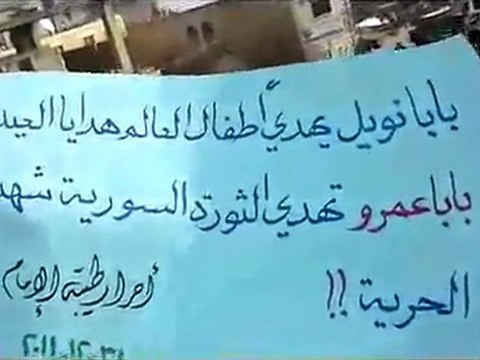 بابا نويل يهدي أطفال العالم هدايا العيد
بابا عمرو تهدي الثورة السورية شهد
الحرية !!
أحرار طيبة الإمام